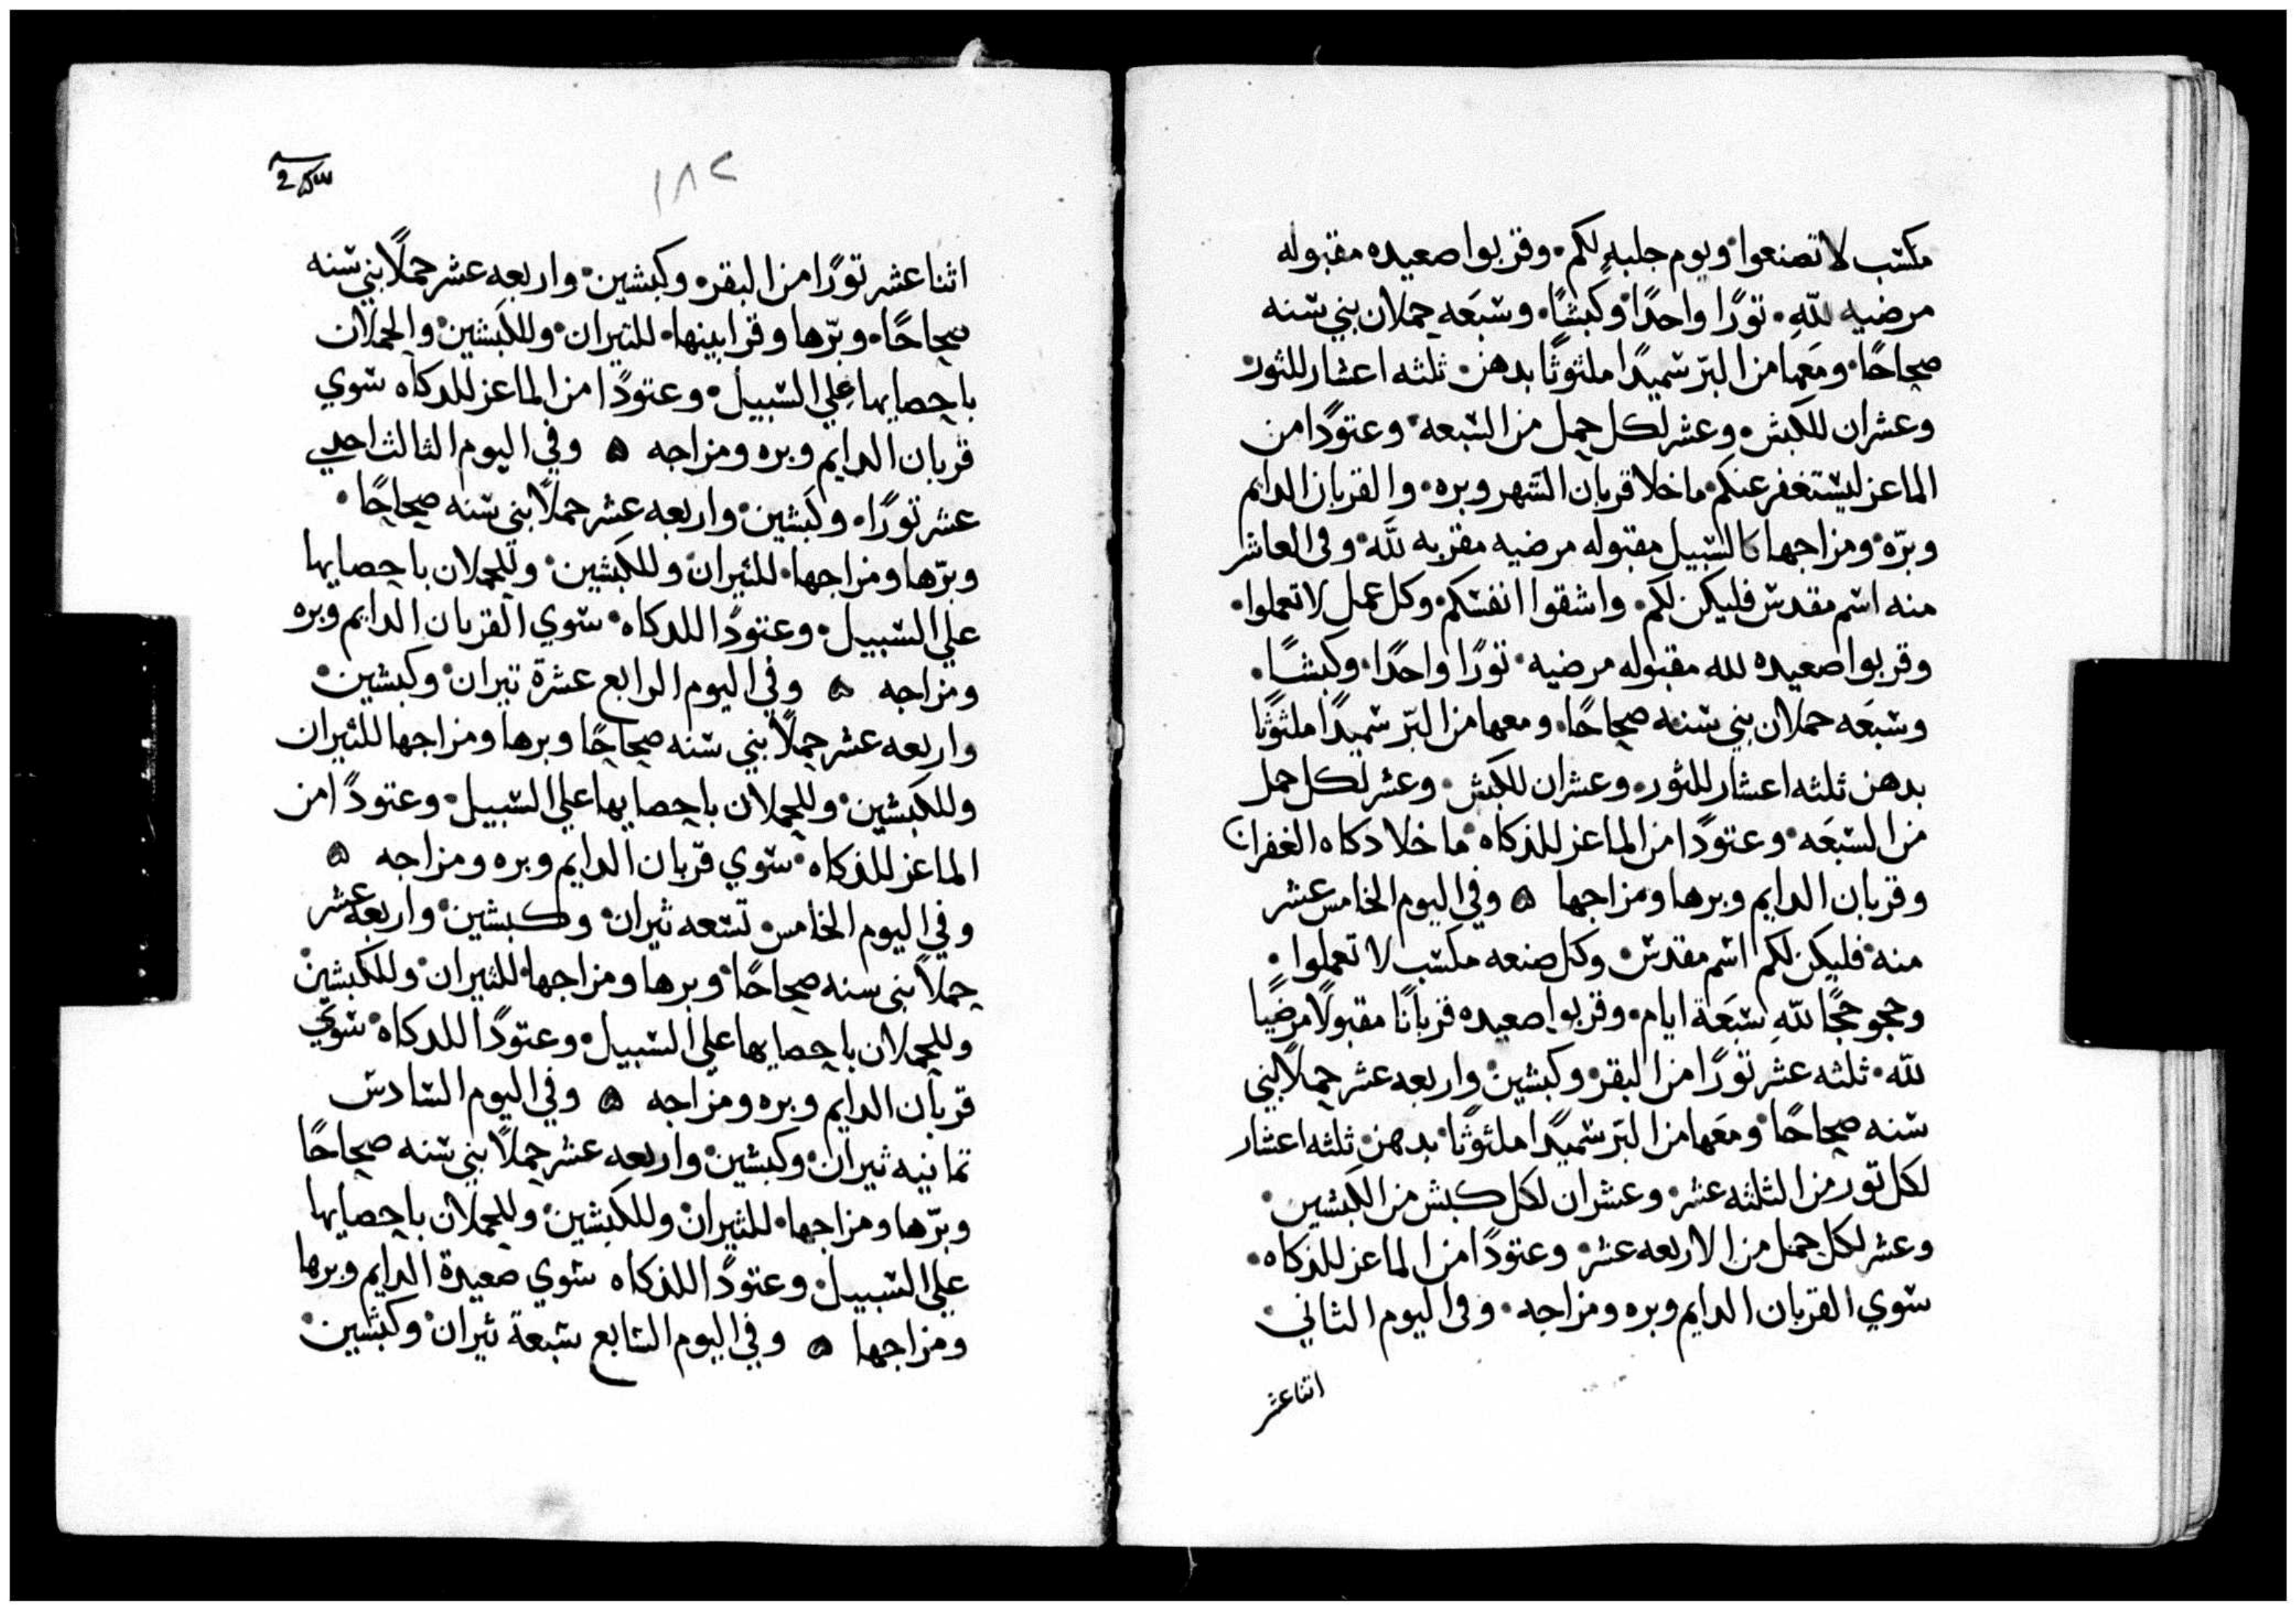 مكسب لا تصنعوا ويوم جلبه لكم. وقربوا صعيده مقبوله
مرضيه لله. تورًا واحدًا وكبشًا. وسبعه حملان بني سنه
صحاحًا. ومعها من البرّ سميدًا ملثوثًا بدهن. ثلثه اعشار للثور
وعشران للكبش. وعشر لكل حمل من السبعه. وعتودًا من
الماعز ليستغفر عنكم. ما خلا قربان الشهر وبره. والقربان الدايم
وبرّه. ومزاجها كالسبيل مقبوله مرضيه مقربه لله. وفي العاشر
منه اسم مقدس فليكن لكم. واشقوا انفسكم. وكل عمل لا تعملوا.
وقربوا صعيده لله مقبوله مرضيه. تورًا واحدًا. وكبشًا.
وسبعه حملان بني سنه صحاحًا. ومعها من البرّ سميدًا ملثوثًا
بدهن ثلثه اعشار للثور. وعشران للكبش. وعشر لكل حمل
من السبعه. وعتودًا من الماعز للذكاه. ما خلا دكاه الغفران
وقربان الدايم وبرها ومزاجها ۞ وفي اليوم الخامس عشر
منه. فليكن لكم اسم مقدس. وكل صنعه مكسب لا تعملوا.
وحجو حجًا لله سبعة ايام. وقربوا صعيده قربانًا مقبولًا مرضيًا
لله. ثلثه عشر تورًا من البقر. وكبشين. واربعه عشر حملًا بني
سنه صحاحًا. ومعها من البرّ سميدًا ملثوثًا. بدهن. ثلثه اعشار
لكل تور من الثلثه عشر. وعشران لكل كبش من الكبشين.
وعشر لكل حمل من الاربعه عشر. وعتودًا من الماعز للذكاه.
سوي القربان الدايم وبره ومزاجه. وفي اليوم الثاني
اثنا عشر
١٨٢
اثنا عشر تورًا من البقر. وكبشين. واربعه عشر حملًا بني سنه
صحاحًا. وبرّها وقرابينها. للتيران. وللكبشين. والحملان
باحصايها علي السبيل. وعتودًا من الماعز للدكاه سوي
قربان الدايم وبره ومزاجه ۞ وفي اليوم الثالث احدي
عشر تورًا. وكبشين. واربعه عشر حملًا بني سنه صحاحًا.
وبرّها ومزاجها. للثيران. وللكبشين. وللحملان باحصايها
علي السبيل. وعتودًا للدكاه. سوي القربان الدايم وبره
ومزاجه ۞ وفي اليوم الرابع عشرة تيران. وكبشين.
واربعه عشر حملًا بني سنه صحاحًا وبرها ومزاجها للثيران
وللكبشين. وللحملان باحصايها علي السبيل. وعتودًا من
الماعز للذكاه. سوي قربان الدايم وبره ومزاجه ۞
وفي اليوم الخامس تسعه ثيران. وكبشين. واربعه عشر
حملًا بني سنه صحاحًا. وبرها ومزاجها. للثيران. وللكبشين
وللحملان باحصايها علي السبيل. وعتودًا للدكاه. سوي
قربان الدايم وبره ومزاجه ۞ وفي اليوم السادس
تمانيه ثيران. وكبشين. واربعه عشر حملًا بني سنه صحاحًا
وبرّها ومزاجها. للثيران. وللكبشين. وللحملان باحصايها
علي السبيل. وعتودًا للذكاه سوي صعيدة الدايم وبرها
ومزاجها ۞ وفي اليوم السابع سبعة ثيران. وكبشين.